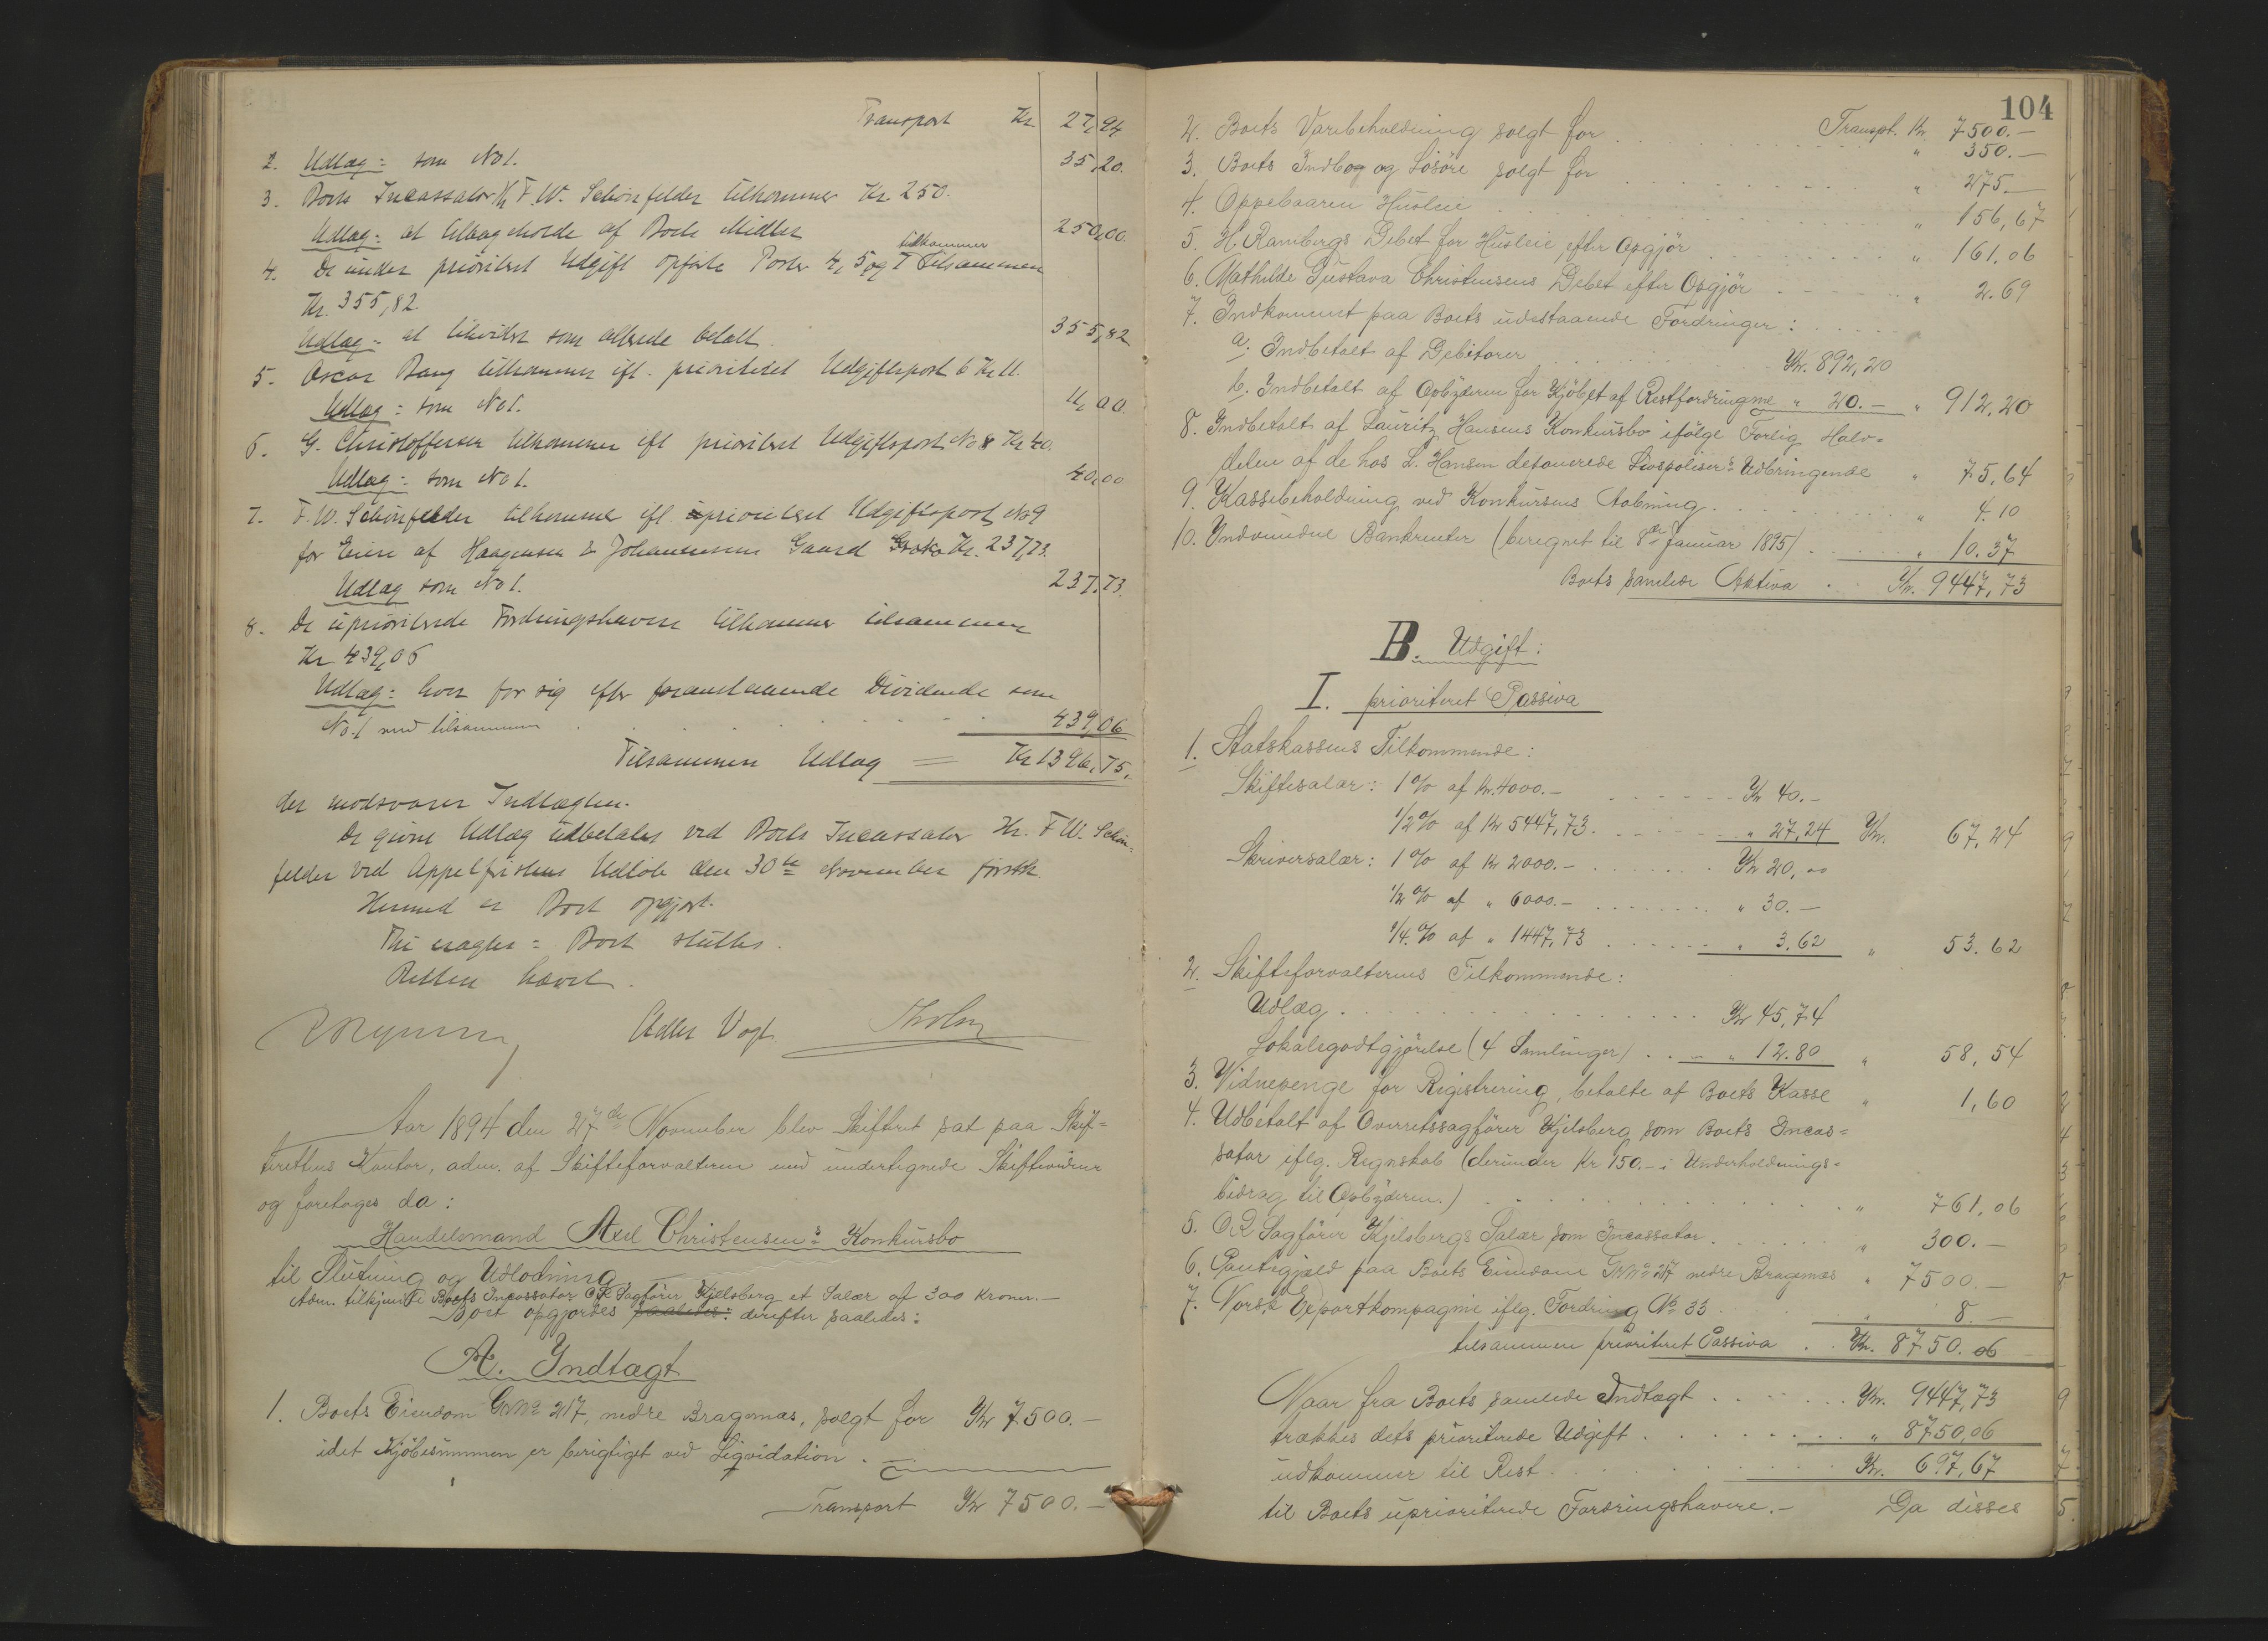 Transport Kr. 27,94
2. Udlæg: som No 1. 35,20.
3. Boets Incassator Hr F. W. Schönfelder tilkommer Kr. 250.
Udlæg: at tilbageholde af Boets Midler 250,00.
tilkommer
4. De under prioriteret Udgift opførte Poster 4, 5 og 7 tilsammen
Kr. 355,82
Udlæg: at likvidere som allerede betalt. 355,82
5. Oscar Bang tilkommer ifl. prioriteret Udgiftspost 6 Kr. 11.
Udlæg: som No 1. 11,00.
6. G. Christoffersen tilkommer ifl prioriteret Udgiftspost No 8 Kr 40.
Udlæg: som No 1. 40,00
7. F. W. Schönfelder tilkommer ifl. prioriteret Udgiftspost No 9
for Eiere af Haagensen & Johannesens Gaard Kr. 237,73.
Udlæg som No 1. 237,73.
8. De uprioriterede Fordringshavere tilkommer tilsammen
Kr 439,06
Udlæg: hver for sig efter foranstaaende Dividende som
No. 1 med tilsammen 439,06
Tilsammen Udlæg = Kr 1396,75.
der modsvarer Indtægten.
De givne Udlæg udbetales ved Boets Incassator Hr. F W. Schön-
felder ved Appelfristens Udløb den 30te November førstk.
Hermed er Boet opgjort.
Thi eragtes: Boet sluttes.
Retten hævet.
Adler Vogt Tholm
Aar 1894 den 27de November blev Skifteret sat paa Skif-
terettens Kontor, adm. af Skifteforvalteren med undertegnede Skiftevidner
og foretoges da:
Handelsmand Axel Christensens Konkursbo
til Slutning og Udlodning
Adm. tilkjendte Boets Incassator OR Sagfører Kjelsberg et Salær af 300 Kroner.—
Boet opgjordes saaledes: derefter saaledes:
A. Indtægt
1. Boets Eiendom GrNo 217, nedre Bragernæs, solgt for Kr 7500.—
idet Kjöbesummen er berigtiget ved Liqvidation.
Transport Kr 7500.—
104
Transpt. Kr 7500.—
2. Boets Varebeholdning solgt for " 350.—
3. Boets Indbog og Lösöre solgt for " 275.—
4. Oppebaaren Husleie " 156,67
5. H. Rambergs Debet for Husleie efter Opgjör " 161.06
6. Mathilde Gustava Christensens Debet efter Opgjör " 2.69
7. Indkommet paa Boets udestaaende Fordringer:
a. Indbetalt af Debitorer Kr. 892,20
b. Indbetalt af Opbyderen for Kjöbet af Restfordringerne " 20.— " 912,20
8. Indbetalt af Lauritz Hansens Konkursbo ifölge Forlig Halv-
delen af de hos L. Hansen deponerede Livspolisers Udbringende " 75,64
9. Kassebeholdning ved Konkursens Aabning " 4.10
10. Indvundne Bankrenter (beregnet til 8de Januar 1895) " 10.37
Boets samlede Aktiva Kr. 9447,73
B. Udgift:
I. prioriteret Passiva
1. Statskassens Tilkommende:
Skiftesalær: 1% af Kr. 4000.— Kr 40.—
1/2% af Kr 5447,73. " 27,24 Kr. 67,24
Skriversalær: 1% af Kr 2000.— Kr 20,00
1/2% af " 6000.— " 30.—
1/4.% af " 1447,73 " 3,62 " 53.62
2. Skifteforvalterens Tilkommende:
Udlæg Kr 45,74
Lokalegodtgjörelse (4 Samlinger) " 12.80 " 58,54
3. Vidnepenge for Registrering, betalte af Boets Kasse " 1,60
4. Udbetalt af Overretssagförer Kjelsberg som Boets Incas-
sator iflg. Regnskab (derunder Kr 150.— i Underholdnings-
bidrag til Opbyderen.) " 761,06
5. OR Sagförer Kjelsbergs Salær som Incassator " 300.—
6. Pantegjæld paa Boets Eiendom GrNo 217 nedre Bragernæs " 7500.—
7. Norsk Exportkompagnie iflg. Fordring No 33 " 8.—
tilsammen prioriteret Passiva Kr. 8750.06
Naar fra Boets samlede Indtægt Kr. 9447,73
trækkes dets prioriterede Udgift " 8750,06
udkommer til Rest Kr. 697,67
til Boets uprioriterede Fordringshavere.— Da disses